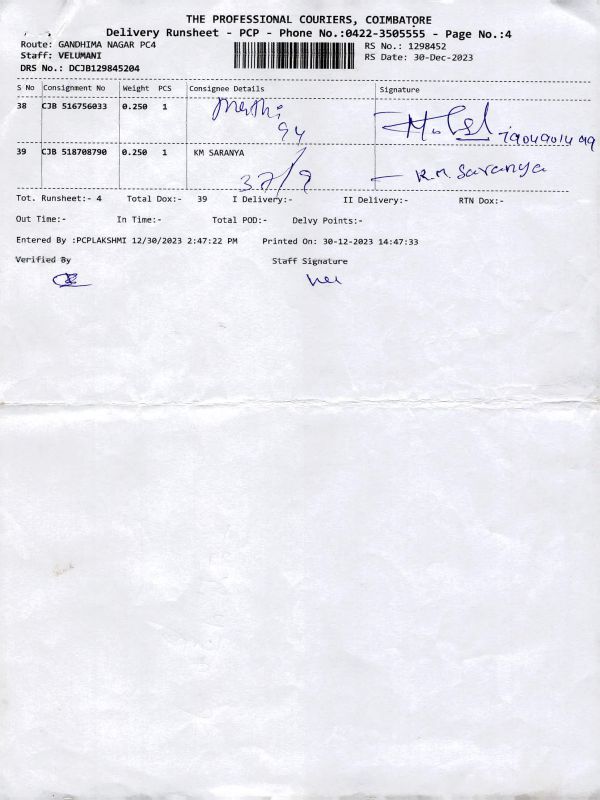 THE PROFESSIONAL COURIERS, COIMBATORE
Delivery Runsheet - PCP - Phone No.:0422-3505555 - Page No.:4
Route: GANDHIMA NAGAR PC4 RS No.: 1298452
Staff: VELUMANI RS Date: 30-Dec-2023
DRS No.: DCJB129845204
S No Consignment No Weight PCS Consignee Details Signature
38 CJB 516756033 0.250 1
94
39 CJB 518708790 0.250 1 KM SARANYA K.M. Saranya
37/9
Tot. Runsheet:- 4 Total Dox:- 39 I Delivery:- II Delivery:- RTN Dox:-
Out Time:- In Time:- Total POD:- Delvy Points:-
Entered By :PCPLAKSHMI 12/30/2023 2:47:22 PM Printed On: 30-12-2023 14:47:33
Verified By Staff Signature